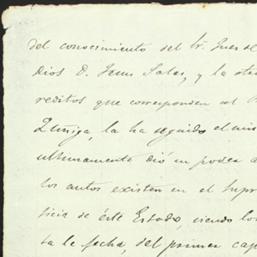 del conocimiento del Sr. Juez de
dios D. Jesus Salas, y la otra
reditos que corresponden al
Zuñiga, la ha seguido el mis
ultimamente dió en poder
los autos existen en el Supre
ticia de éste Estado, siendo los
ta la fecha, del primer cap